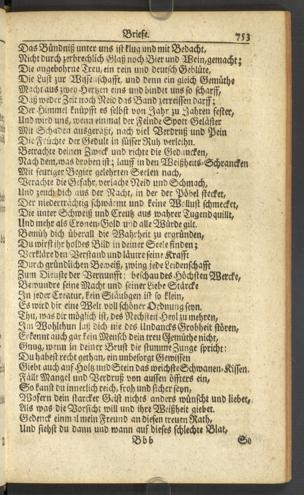 Briefe. 753
Das Bündniß unter uns ist klug und mit Bedacht,
Nicht durch zerbrechlich Glaß noch Bier und Wein, gemacht;
Die angebohrne Treu, ein rein und deutsch Geblüte,
Die Lust zur Wissenschafft, und denn ein gleich Gemüthe
Macht aus zwey Hertzen eins und bindet uns so scharff,
Daß weder Zeit noch Neid das Band zerreissen darff;
Der Himmel knüpfft es selbst von Jahr zu Jahren fester,
Und wird uns, wenn einmal der Feinde Spott Geläster
Mit Schaden ausgeraßt, nach viel Verdruß und Pein
Die Früchte der Gedult in süsser Ruh verleihn.
Betrachte deinen Zweck und richte die Gedancken,
Nach dem, was droben ist; lauff in den Weißheits-Schrancken
Mit feuriger Begier gelehrten Seelen nach,
Verachte die Gefahr, verlache Neid und Schmach,
Und zeuch dich aus der Nacht, in der der Pöbel stecket,
Der niederträchtig schwärmt und keine Wollust schmecket,
Die unter Schweiß und Creutz aus wahrer Tugend quillt,
Und mehr als Cronen-Gold und alle Würde gilt.
Bemüh dich überall die Wahrheit zu ergründen,
Du wirst ihr holdes Bild in deiner Seele finden;
Verkläre den Verstand und läutre seine Krafft
Durch gründlichen Beweiß, zwing jede Leidenschafft
Zum Dienste der Vernunfft: beschau des Höchsten Wercke,
Bewundre seine Macht und seiner Liebe Stärcke
In jeder Creatur, kein Stäubgen ist so klein,
Es wird dir eine Welt voll schöner Ordnung seyn.
Thu, was dir möglich ist, des Nechsten Heyl zu mehren,
Im Wohlthun laß dich nie des Undancks Grobheit stören,
Erkennt auch gar kein Mensch dein treu Gemüthe nicht,
Gnug, wenn in deiner Brust die stumme Zunge spricht:
Du habest recht gethan, ein unbesorgt Gewissen
Giebt auch auf Holtz und Stein das weichste Schwanen-Kissen.
Fällt Mangel und Verdruß von aussen öffters ein,
So kanst du innerlich reich, froh und sicher seyn,
Wofern dein starcker Geist nichts anders wünscht und liebet,
Als was die Vorsicht will und ihre Weißheit giebet.
Gedenck einmal mein Freund an diesen treuen Rath,
Und siehst du dann und wann auf dieses schlechte Blat,
Bbb So